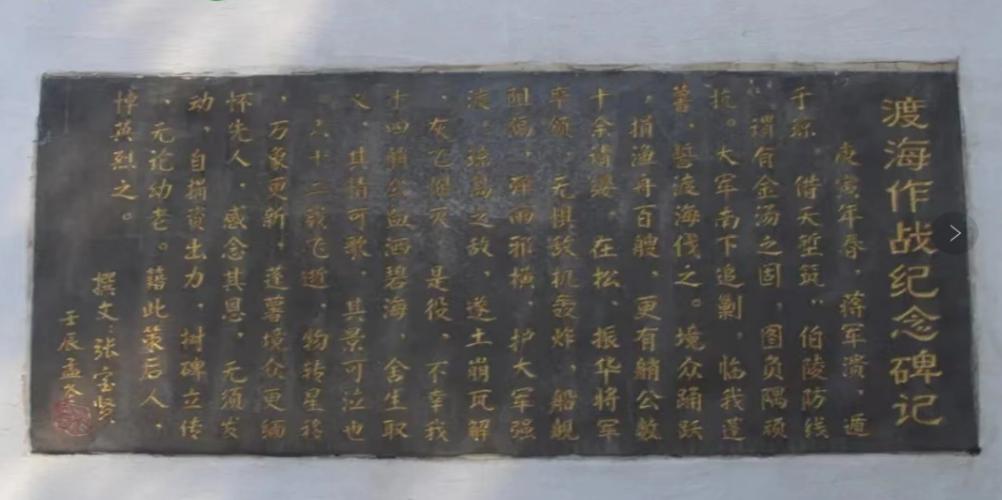 渡海作战纪念碑记
庚寅年春，蒋军溃，遁
于琼，借天堑筑“伯陵防线
，谓有金汤之固，图负隅顽
抗。大军南下追剿，临我蓬
薯，誓渡海伐之。境众踊跃
，捐渔舟百艘，更有艄公数
十余请缨，在松、振华将军
率领，无惧敌机轰炸，船舰
阻隔，弹雨邪横，护大军强
渡，琼岛之敌，遂土崩瓦解
，灰飞烟灭。是役，不幸我
十四艄公血洒碧海，舍生取
义，其情可歌，其景可泣也
。六十二载飞逝，物转星移
，万象更新，蓬薯境众更缅
怀先人，感念其恩，无须发
动，自捐资出力，树碑立传
，无论幼老。籍此策后人，
悼英烈之。
撰文：张宝贤
壬辰孟冬